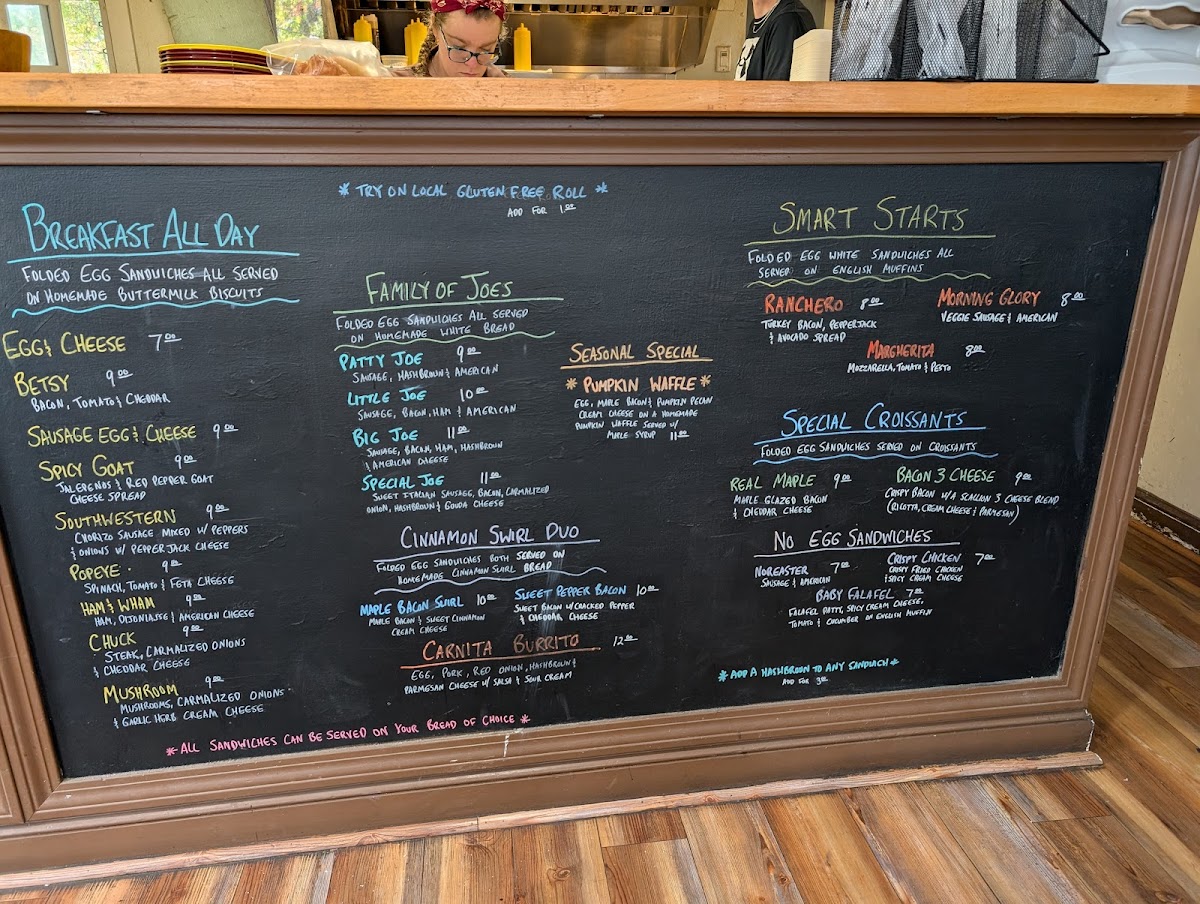 * TRY ON LOCAL GLUTEN FREE ROLL *
ADD FOR 1.00
BREAKFAST ALL DAY
FOLDED EGG SANDWICHES ALL SERVED
ON HOMEMADE BUTTERMILK BISCUITS
EGG & CHEESE 7.00
BETSY 9.00
BACON, TOMATO & CHEDDAR
SAUSAGE EGG & CHEESE 9.00
SPICY GOAT 9.00
JALEPENOS & RED PEPPER GOAT
CHEESE SPREAD
SOUTHWESTERN 9.00
CHORIZO SAUSAGE MIXED W/ PEPPERS
& ONIONS W/ PEPPER JACK CHEESE
POPEYE 9.00
SPINACH, TOMATO & FETA CHEESE
HAM & WHAM 9.00
HAM, DIJONIASE & AMERICAN CHEESE
CHUCK 9.00
STEAK, CARMALIZED ONIONS
& CHEDDAR CHEESE
MUSHROOM 9.00
MUSHROOMS, CARMALIZED ONIONS
& GARLIC HERB CREAM CHEESE
* ALL SANDWICHES CAN BE SERVED ON YOUR BREAD OF CHOICE *
FAMILY OF JOES
FOLDED EGG SANDWICHES ALL SERVED
ON HOMEMADE WHITE BREAD
PATTY JOE 9.00
SAUSAGE, HASHBROWN & AMERICAN
LITTLE JOE 10.00
SAUSAGE, BACON, HAM & AMERICAN
BIG JOE 11.00
SAUSAGE, BACON, HAM, HASHBROWN
& AMERICAN CHEESE
SPECIAL JOE 11.00
SWEET ITALIAN SAUSAGE, BACON, CARMALIZED
ONION, HASHBROWN & GOUDA CHEESE
SEASONAL SPECIAL
* PUMPKIN WAFFLE *
EGG, MAPLE BACON & PUMPKIN PECAN
CREAM CHEESE ON A HOMEMADE
PUMPKIN WAFFLE SERVED W/
MAPLE SYRUP 11.00
CINNAMON SWIRL DUO
FOLDED EGG SANDWICHES BOTH SERVED ON
HOMEMADE CINNAMON SWIRL BREAD
MAPLE BACON SWIRL 10.00
MAPLE BACON & SWEET CINNAMON
CREAM CHEESE
SWEET PEPPER BACON 10.00
SWEET BACON W/ CRACKED PEPPER
& CHEDDAR CHEESE
CARNITA BURRITO 12.00
EGG, PORK, RED ONION, HASHBROWN &
PARMESAN CHEESE W/ SALSA & SOUR CREAM
SMART STARTS
FOLDED EGG WHITE SANDWICHES ALL
SERVED ON ENGLISH MUFFINS
RANCHERO 8.00
TURKEY BACON, PEPPERJACK
& AVOCADO SPREAD
MORNING GLORY 8.00
VEGGIE SAUSAGE & AMERICAN
MARGHERITA 8.00
MOZZARELLA, TOMATO & PESTO
SPECIAL CROISSANTS
FOLDED EGG SANDWICHES SERVED ON CROISSANTS
REAL MAPLE 9.00
MAPLE GLAZED BACON
& CHEDDAR CHEESE
BACON 3 CHEESE 9.00
CRISPY BACON W/ A SCALLION 3 CHEESE BLEND
(RICOTTA, CREAM CHEESE & PARMESAN)
NO EGG SANDWICHES
NOREASTER 7.00
SAUSAGE & AMERICAN
CRISPY CHICKEN 7.00
CRISPY FRIED CHICKEN
& SPICY CREAM CHEESE
BABY FALAFEL 7.00
FALAFEL PATTY, SPICY CREAM CHEESE,
TOMATO & CUCUMBER ON ENGLISH MUFFIN
* ADD A HASHBROWN TO ANY SANDWICH *
ADD FOR 3.00